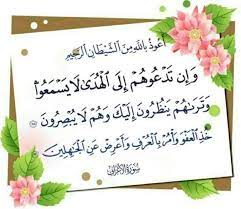 أَعُوذُ بِاللَّهِ مِنَ الشَّيْطَانِ الرَّجِيمِ
وَإِن تَدْعُوهُمْ إِلَى الْهُدَىٰ لَا يَسْمَعُوا
وَتَرَاهُمْ يَنظُرُونَ إِلَيْكَ وَهُمْ لَا يُبْصِرُونَ ﴿١٩٨﴾
خُذِ الْعَفْوَ وَأْمُرْ بِالْعُرْفِ وَأَعْرِضْ عَنِ الْجَاهِلِينَ
سورة الأعراف